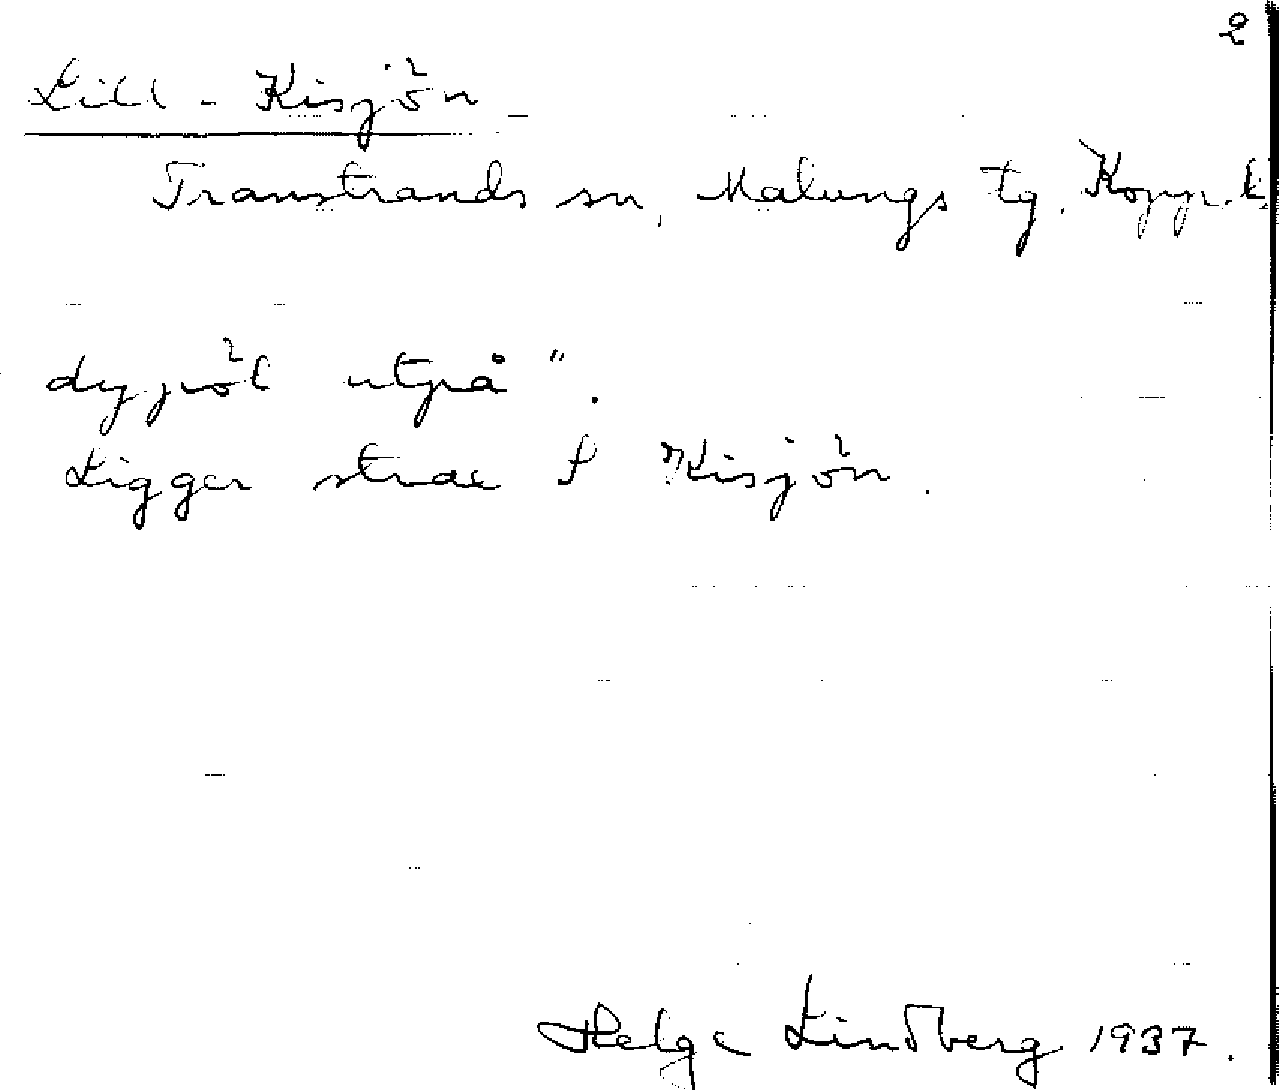 2
Lill-Kisjön
Transtrands sn, Malungs tg. Kopp. l.
dypöl utpå".
Ligger strax S Kisjön.
Helge Lindberg 1937.